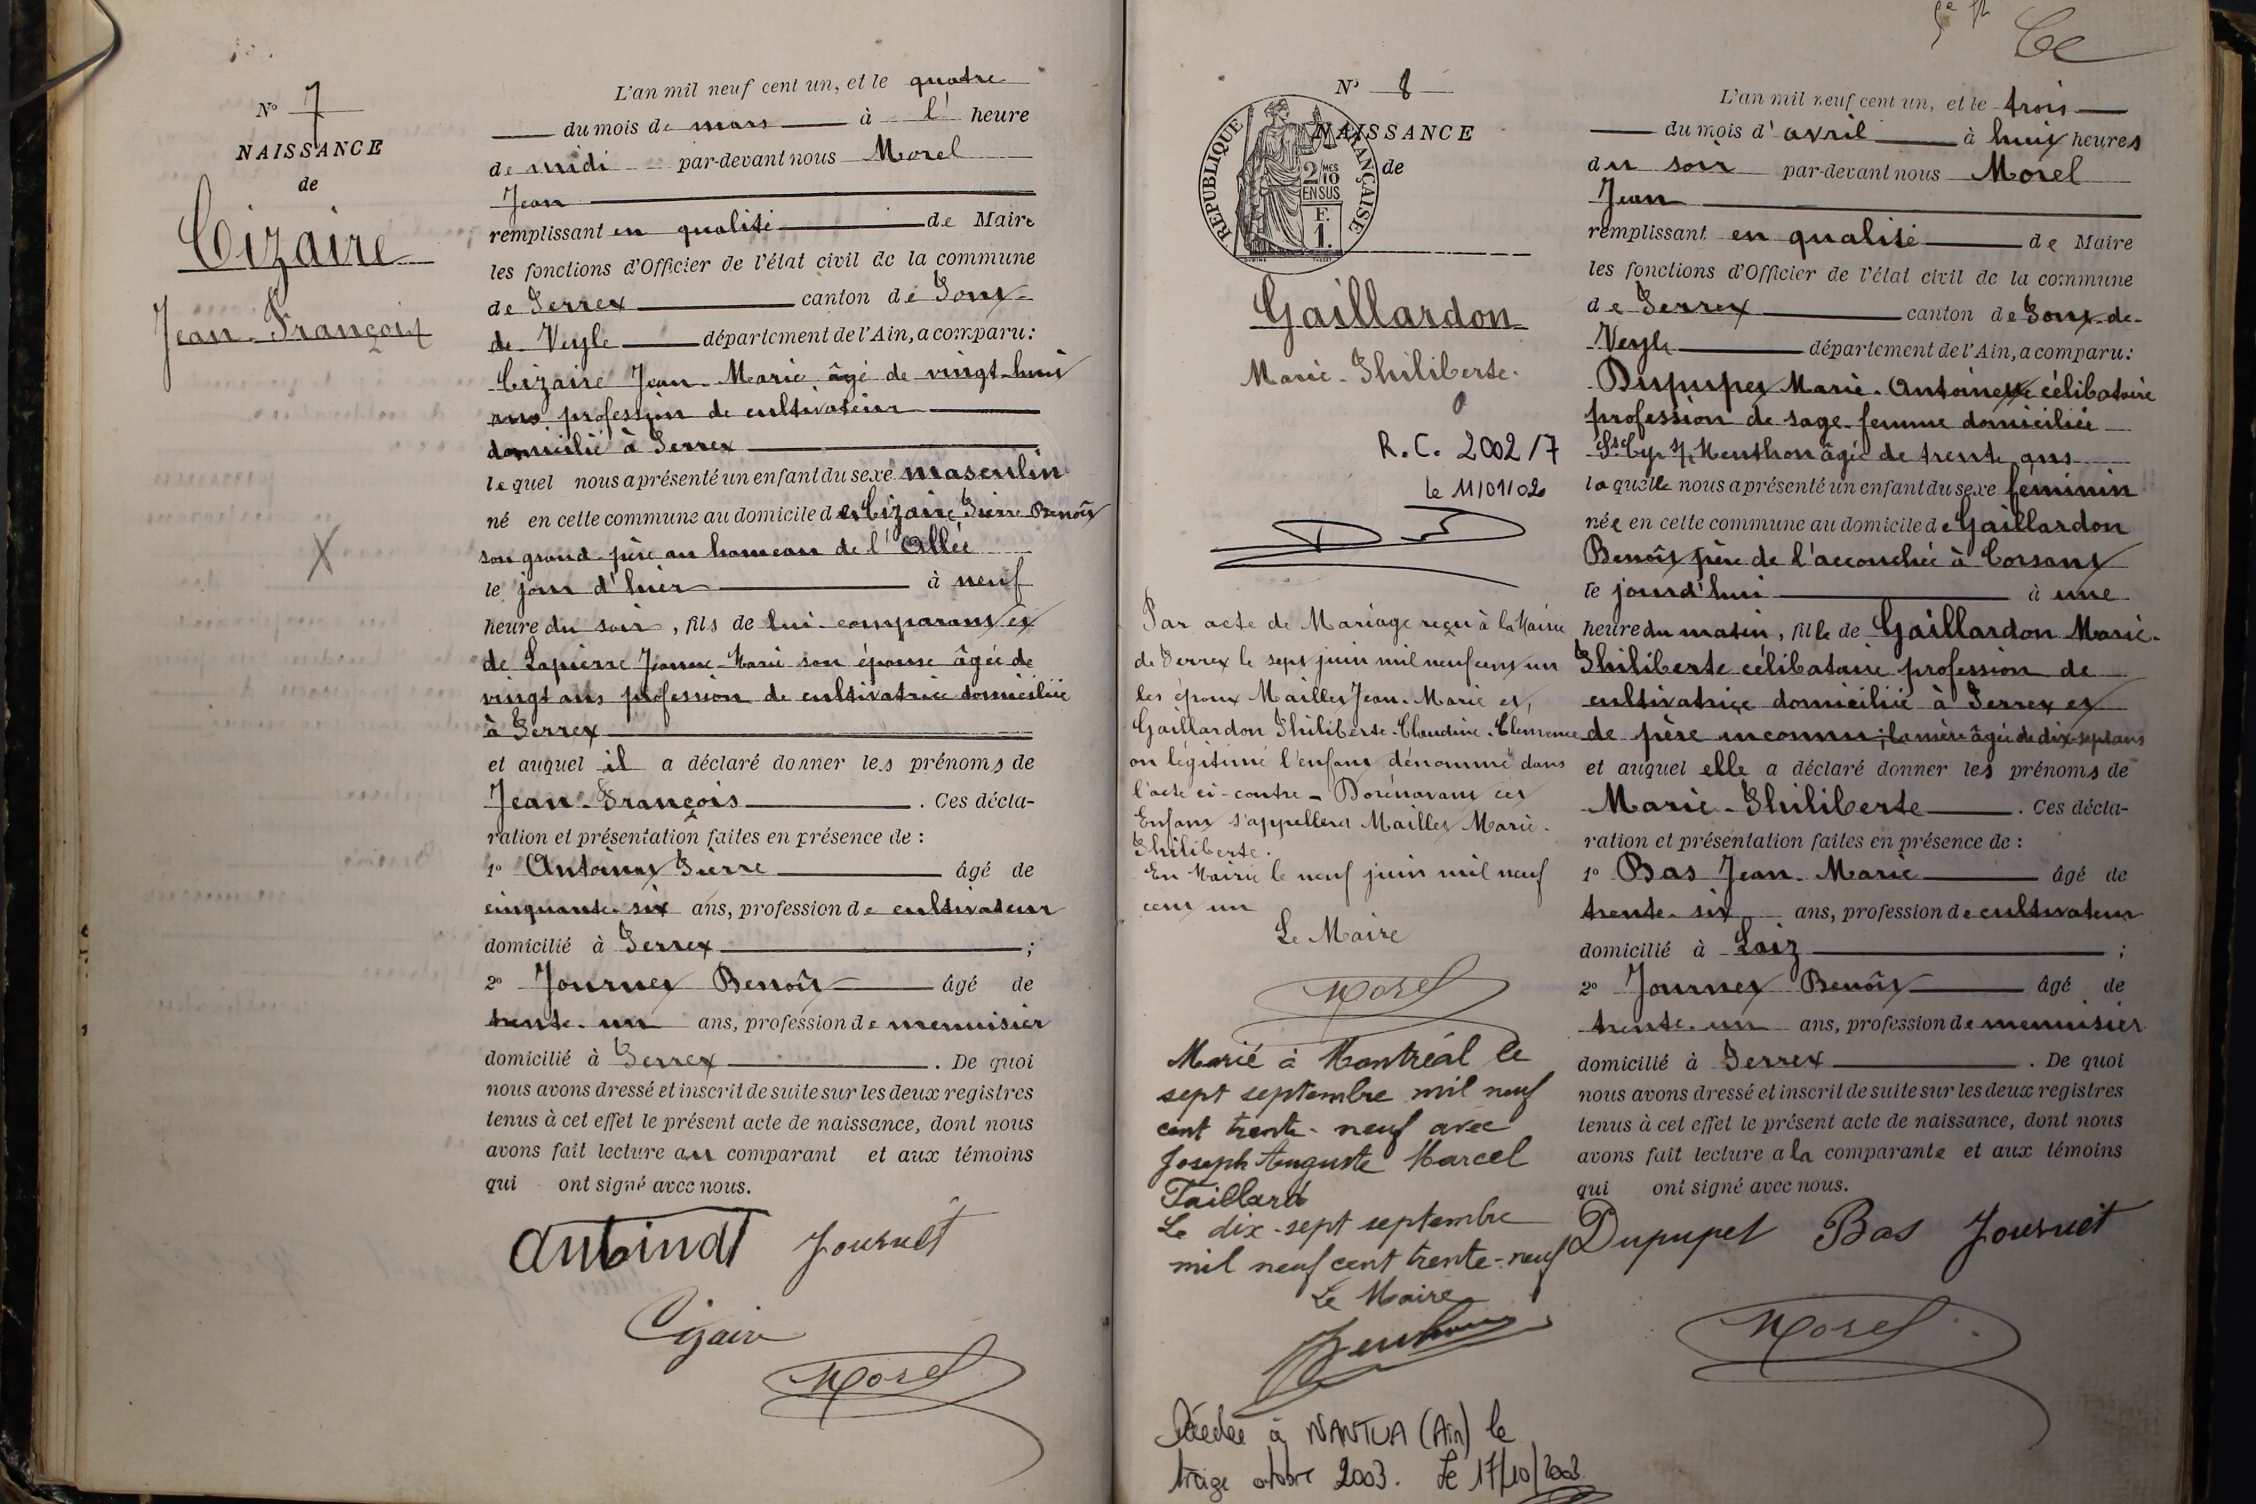 N° 7
NAISSANCE
de
Cizaire
Jean-François
X
L'an mil neuf cent un, et le quatre
du mois de mars à l' heure
de midi par-devant nous Morel
Jean
remplissant en qualité de Maire
les fonctions d'Officier de l'état civil de la commune
de Perrex canton de Pont-
de Veyle département de l'Ain, a comparu:
Cizaire Jean-Marie âgé de vingt-huit
ans profession de cultivateur
domicilié à Perrex
lequel nous a présenté un enfant du sexe masculin
né en cette commune au domicile de Cizaire Pierre Benoît
son grand-père au hameau de l'Allée
le jour d'hier à neuf
heure du soir, fils de lui comparant et
de Lapierre Jeanne-Marie son épouse âgée de
vingt ans profession de cultivatrice domiciliée
à Perrex
et auquel il a déclaré donner les prénoms de
Jean-François. Ces décla-
ration et présentation faites en présence de :
1° Antoinat Pierre âgé de
cinquante-six ans, profession de cultivateur
domicilié à Perrex ;
2° Journet Benoît âgé de
trente-un ans, profession de menuisier
domicilié à Perrex. De quoi
nous avons dressé et inscrit de suite sur les deux registres
tenus à cet effet le présent acte de naissance, dont nous
avons fait lecture au comparant et aux témoins
qui ont signé avec nous.
Journet
Cizaire
Morel
N° 8
NAISSANCE
de
RÉPUBLIQUE FRANÇAISE
2/10MES
EN SUS
F.
1.
Gaillardon
Marie-Philiberte.
R.C. 2002/7
le 11/01/02
Par acte de Mariage reçu à la Mairie
de Perrex le sept juin mil neuf cent un
les époux Maillet Jean-Marie et,
Gaillardon Philiberte-Claudine-Clemence
on légitimé l'enfant dénommé dans
l'acte ci-contre - Dorénavant cet
Enfant s'appellera Maillet Marie-
Philiberte.
En Mairie le neuf juin mil neuf
cent un
Le Maire
Morel
Marié à Montréal le
sept septembre mil neuf
cent trente-neuf avec
Joseph Auguste Marcel
Taillard
Le dix-sept septembre
mil neuf cent trente-neuf
Le Maire
Décédée à NANTUA (Ain) le
treize octobre 2003. Le 17/10/2003
L'an mil neuf cent un, et le trois
du mois d'avril à huit heures
du soir par-devant nous Morel
Jean
remplissant en qualité de Maire
les fonctions d'Officier de l'état civil de la commune
de Perrex canton de Pont-de-
Veyle département de l'Ain, a comparu:
Dupupet Marie-Antoinette célibataire
profession de sage-femme domiciliée
St Cyr s/ Menthon âgée de trente ans
laquelle nous a présenté un enfant du sexe féminin
née en cette commune au domicile de Gaillardon
Benoît père de l'accouchée à Corsant
le jourd'hui à une
heure du matin, fille de Gaillardon Marie-
Philiberte célibataire profession de
cultivatrice domiciliée à Perrex et
de père inconnu ; la mère âgée de dix-sept ans
et auquel elle a déclaré donner les prénoms de
Marie-Philiberte. Ces décla-
ration et présentation faites en présence de :
1° Bas Jean-Marie âgé de
trente-six ans, profession de cultivateur
domicilié à Laiz ;
2° Journet Benoît âgé de
trente-un ans, profession de menuisier
domicilié à Perrex. De quoi
nous avons dressé et inscrit de suite sur les deux registres
tenus à cet effet le présent acte de naissance, dont nous
avons fait lecture a la comparante et aux témoins
qui ont signé avec nous.
Dupupet Bas Journet
Morel